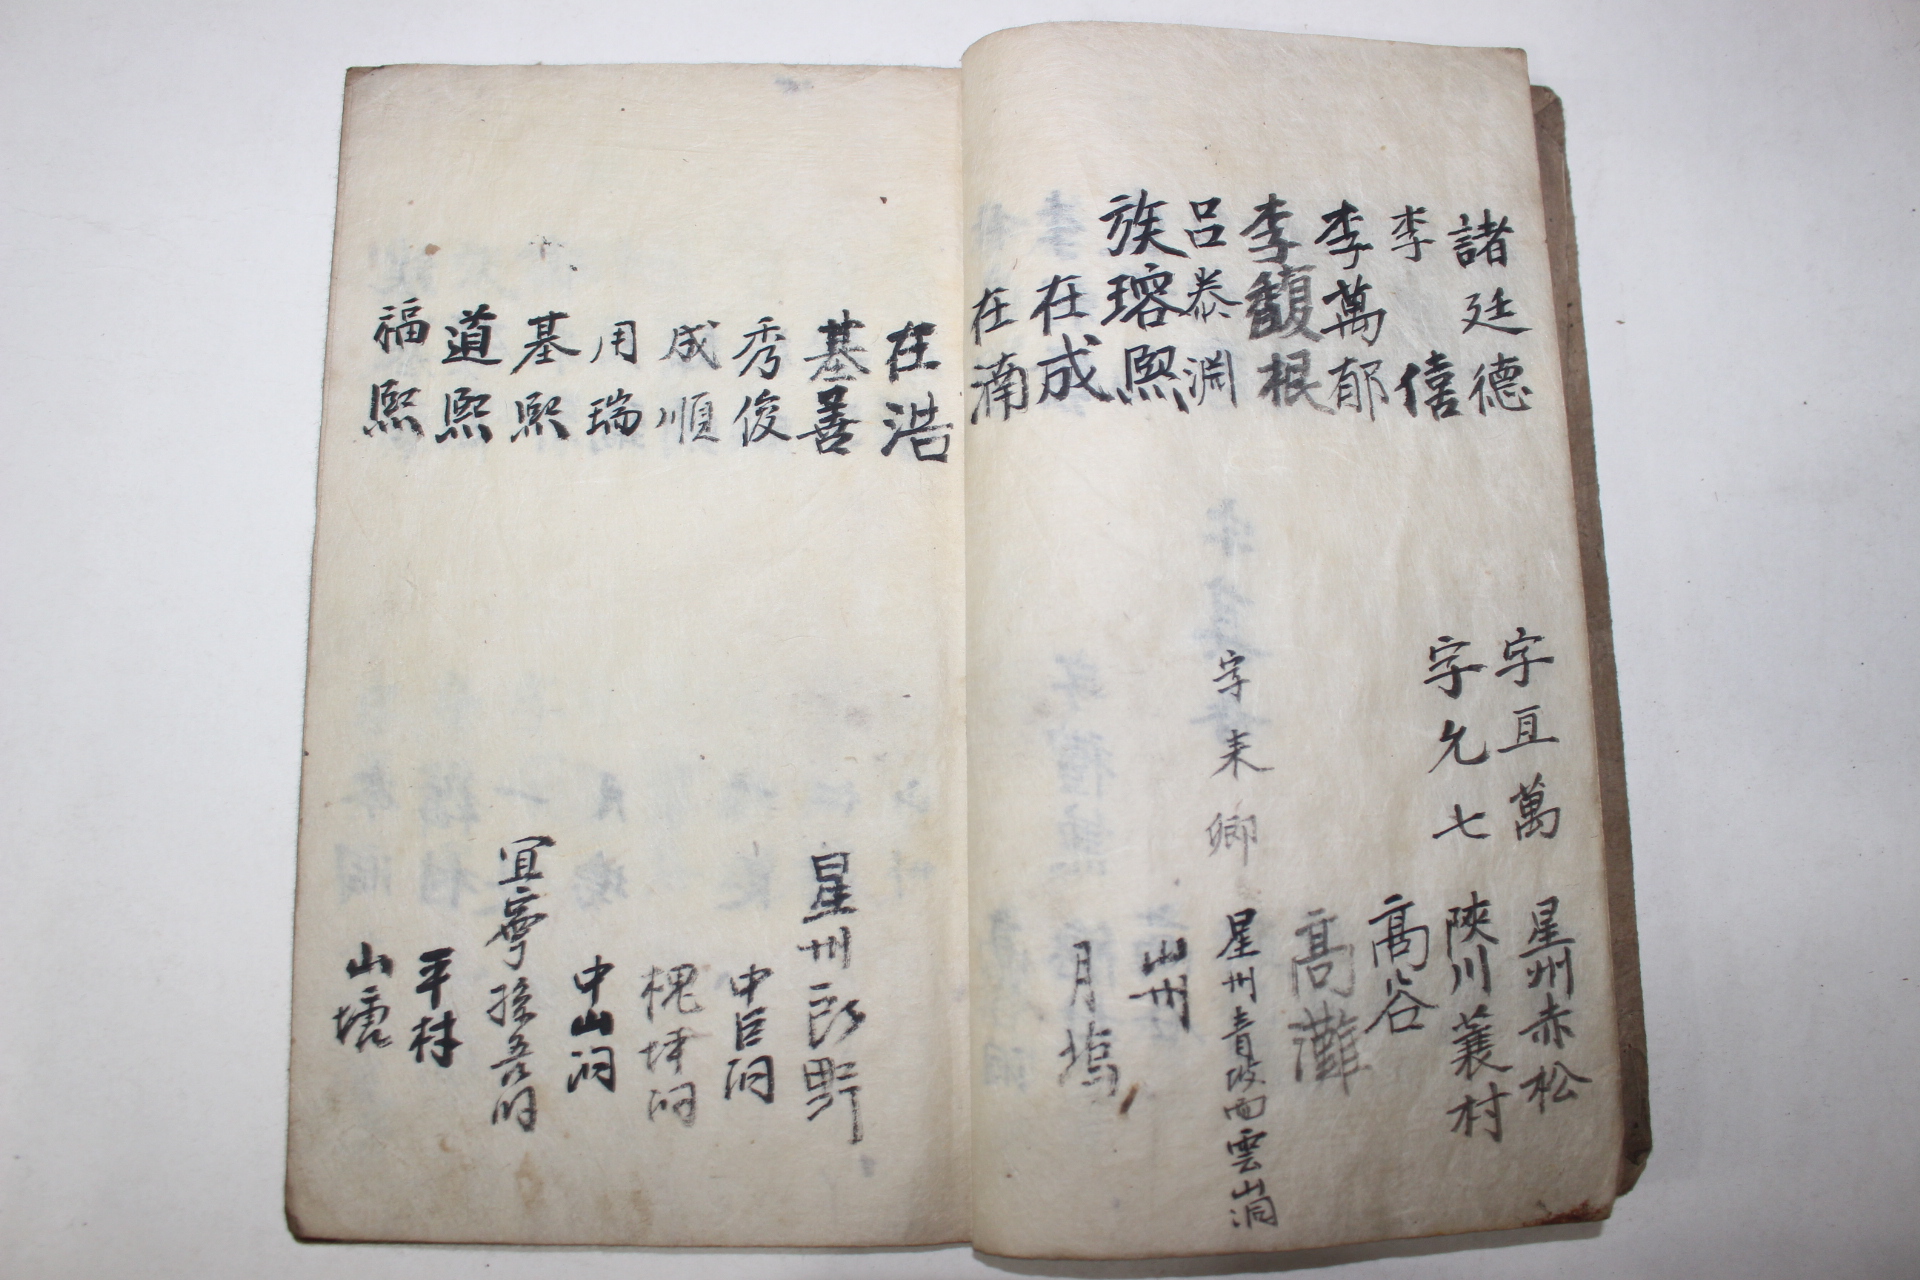 諸廷德 字亘萬 星州赤松
李 僖 字允七 陜川蓑村
李萬郁 高谷
李馥根 高灘
呂泰淵 字耒卿 星州青坡面雲山洞
族瑢熙 山州
在成 月塢
在湳
在浩
基善 星州 野
秀俊 中巨洞
成順 槐 洞
用瑞 中山洞
基熙 宜寧 吾洞
道熙 平林
福熙 山塘